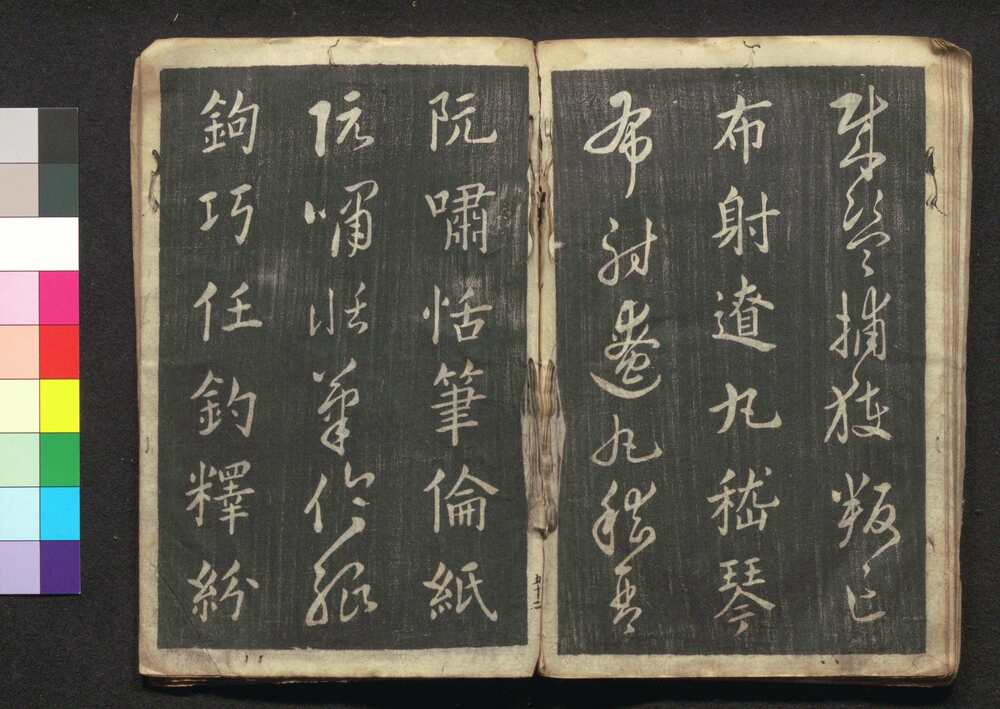 賊盜捕獲叛亡
布射遼丸嵇琴
布射遼丸嵇琴
五十二
阮嘯恬筆倫紙
阮嘯恬筆倫紙
鉤巧任釣釋紛